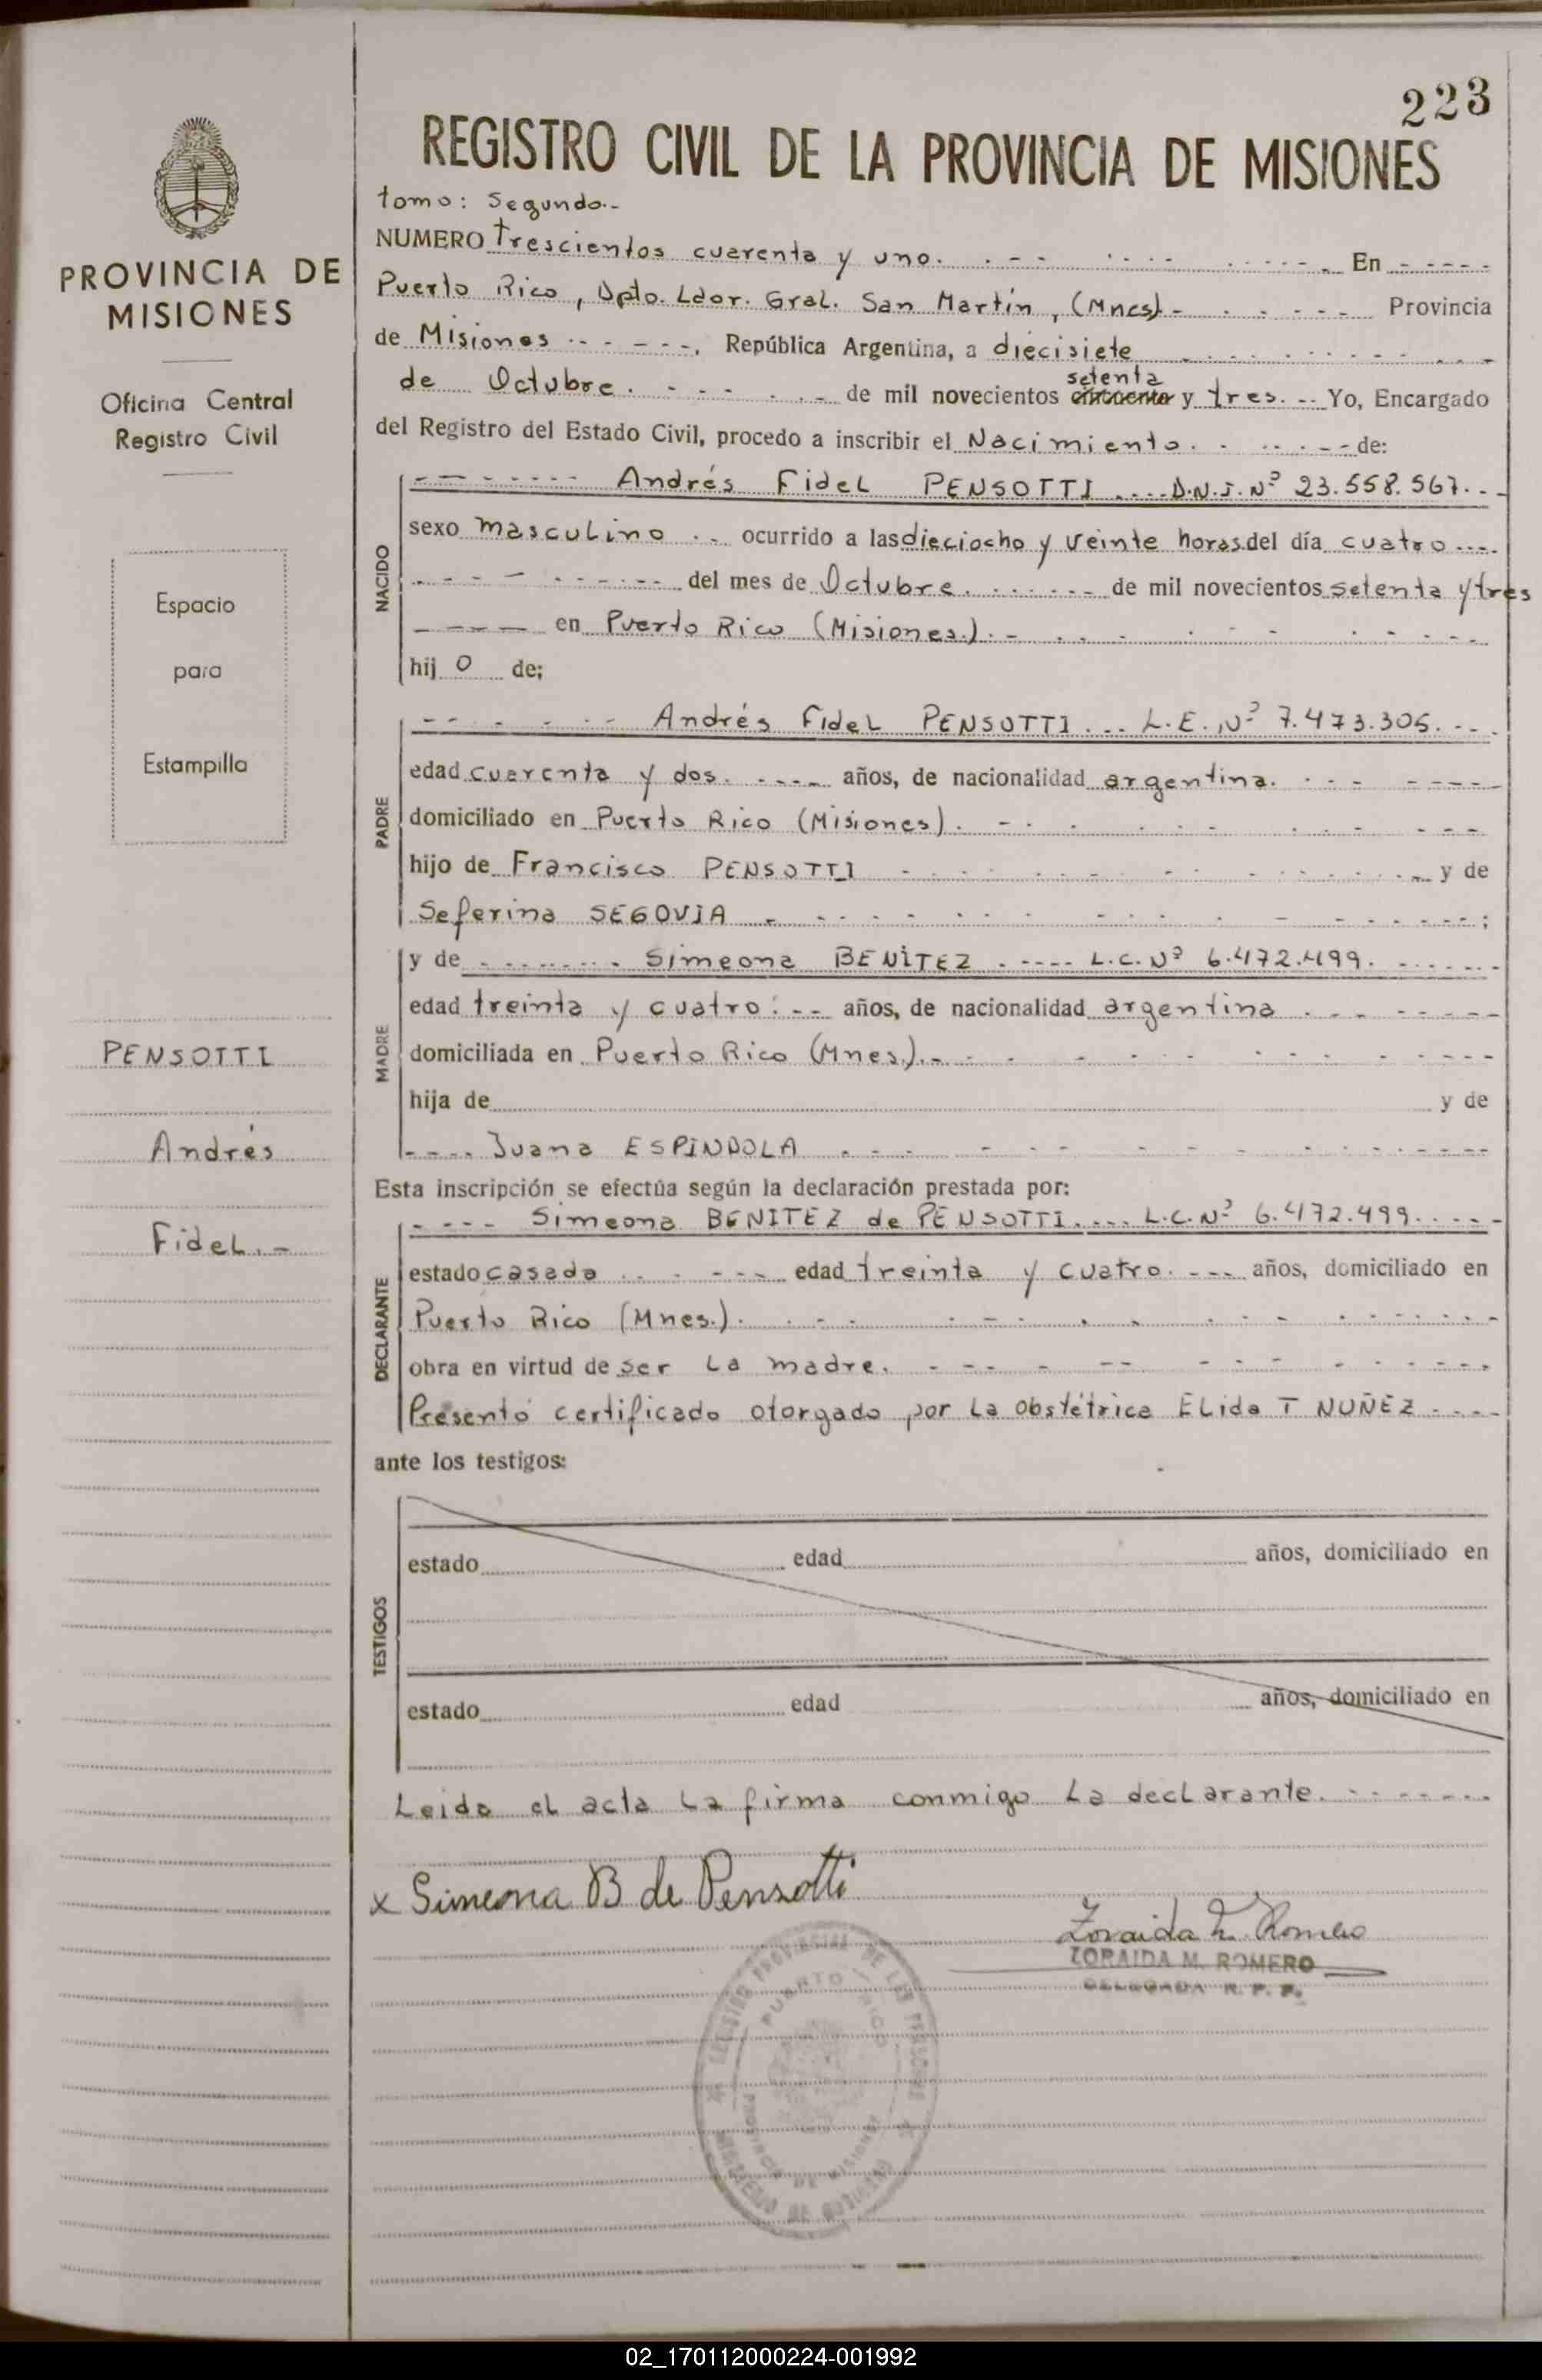 223
REGISTRO CIVIL DE LA PROVINCIA DE MISIONES
PROVINCIA DE
MISIONES
Oficina Central
Registro Civil
Espacio
para
Estampilla
PENSOTTI
Andrés
Fidel.-
tomo: Segundo.-
NUMERO trescientos cuarenta y uno. En
Puerto Rico, Dpto. Ldor. Gral. San Martín, (Mnes).- Provincia
de Misiones, República Argentina, a diecisiete
setenta
de Octubre. de mil novecientos cincuenta y tres. Yo, Encargado
del Registro del Estado Civil, procedo a inscribir el Nacimiento. de:
NACIDO
Andrés Fidel PENSOTTI D.N.I. Nº 23.558.567.
sexo masculino ocurrido a las dieciocho y veinte horas del día cuatro
del mes de Octubre. de mil novecientos setenta y tres
en Puerto Rico (Misiones).
hij o de;
PADRE
Andrés Fidel PENSOTTI L.E. Nº 7.473.305.
edad cuarenta y dos. años, de nacionalidad argentina.
domiciliado en Puerto Rico (Misiones).
hijo de Francisco PENSOTTI y de
Seferina SEGOVIA ;
MADRE
y de Simeona BENITEZ L.C. Nº 6.472.499.
edad treinta y cuatro. años, de nacionalidad argentina
domiciliada en Puerto Rico (Mnes.).
hija de y de
Juana ESPINDOLA
Esta inscripción se efectúa según la declaración prestada por:
DECLARANTE
Simeona BENITEZ de PENSOTTI. L.C. Nº 6.472.499.
estado casada edad treinta y cuatro. años, domiciliado en
Puerto Rico (Mnes.).
obra en virtud de ser la madre.
Presentó certificado otorgado por la obstétrica Elida T NUÑEZ
ante los testigos:
TESTIGOS
estado edad años, domiciliado en
estado edad años, domiciliado en
Leida el acta la firma conmigo la declarante.
x Simeona B de Pensotti
Zoraida M. Romero
ZORAIDA M. ROMERO
DELEGADA R. P. P.
REGISTRO PROVINCIAL DE LAS PERSONAS
PUERTO RICO
PROVINCIA DE MISIONES
MINISTERIO DE GOBIERNO
02_170112000224-001992